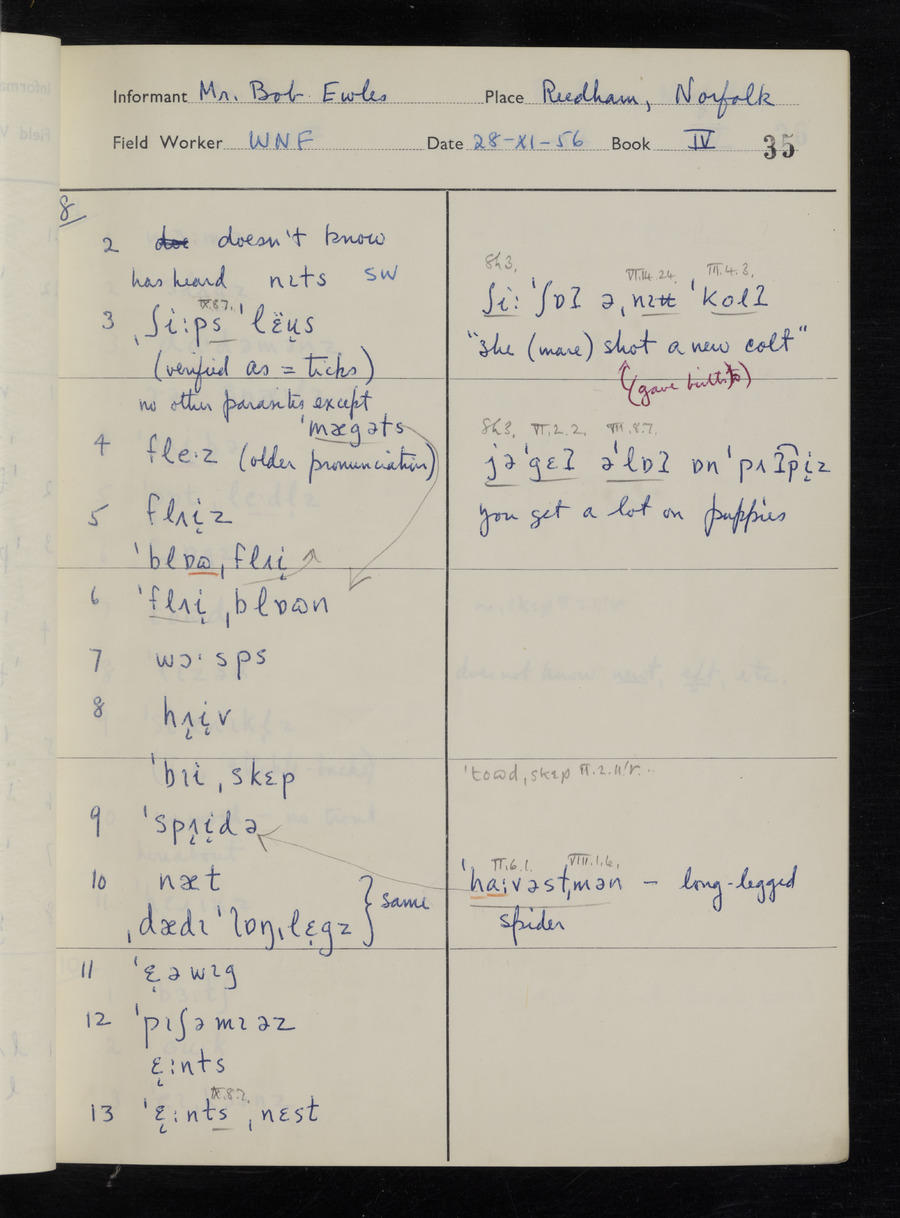 Informant Mr. Bob Ewles Place Reedham, Norfolk
Field Worker WNF Date 28-XI-56 Book IV 35
8
2 doe doesn't know
has heard nɪts SW
IX.8.7.
3 ˌʃi:ps ˈlë̞ʉs
(verified as = ticks)
no other parasites except
ˈmægəts
4 fle·z (older pronunciation)
5 flʌi̞z
ˈblɒɷ, flʌi̞
6 ˈflʌi̞ ˌblɒɷn
7 wɔ·sps
8 hʌ̞i̞v
ˈbɪi ˌskɛp
9 ˈspʌ̞i̞də
10 næt
ˌdædɪ ˈlɒŋˌlɛ̞gz } same
11 ˈɛ̞əwɪg
12 ˈpɪʃəmɪəz
ɛ̞:nts
IX.8.7.
13 ˈɛ̞:nts ˌnɛst
8h3. VI.14.24. III.4.3.
ʃi: ˈʃɒʔ əˌnɪʉ ˈkolʔ
"She (mare) shot a new colt"
(gave birth to)
8h3. VI.2.2. VII.8.7.
jəˈgɛʔ əˈlɒʔ ɒn ˈpʌʔpi̞z
you get a lot on puppies
ˈtoɷd, skɛp
II.6.1. VIII.1.6.
ˈha:vəstˌmən — long-legged
spider